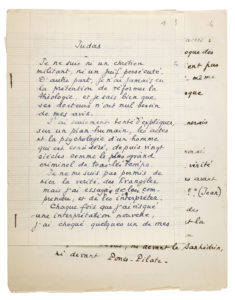 Judas
Je ne suis ni un chrétien
militant, ni un juif persécuté.
D'autre part, je n'ai jamais eu
la prétention de réformer la
théologie, et je sais bien que
ses docteurs n'ont nul besoin
de mes avis.
J'ai seulement tenté d'expliquer,
sur un plan humain, les actes
et la psychologie d'un homme
qui est considéré, depuis vingt
siècles comme le plus grand
criminel de tous les temps.
Je ne me suis pas permis de
nier la vérité des Evangiles
mais j'ai essayé de les com-
prendre, et de les interpréter.
Chaque fois que j'ai risqué
une interprétation nouvelle,
j'ai choqué quelques un de mes
ni devant le Sanhédrin,
ni devant Ponce-Pilate.
que des
pas
même
vérité
avant
? (Jean)
des
et la